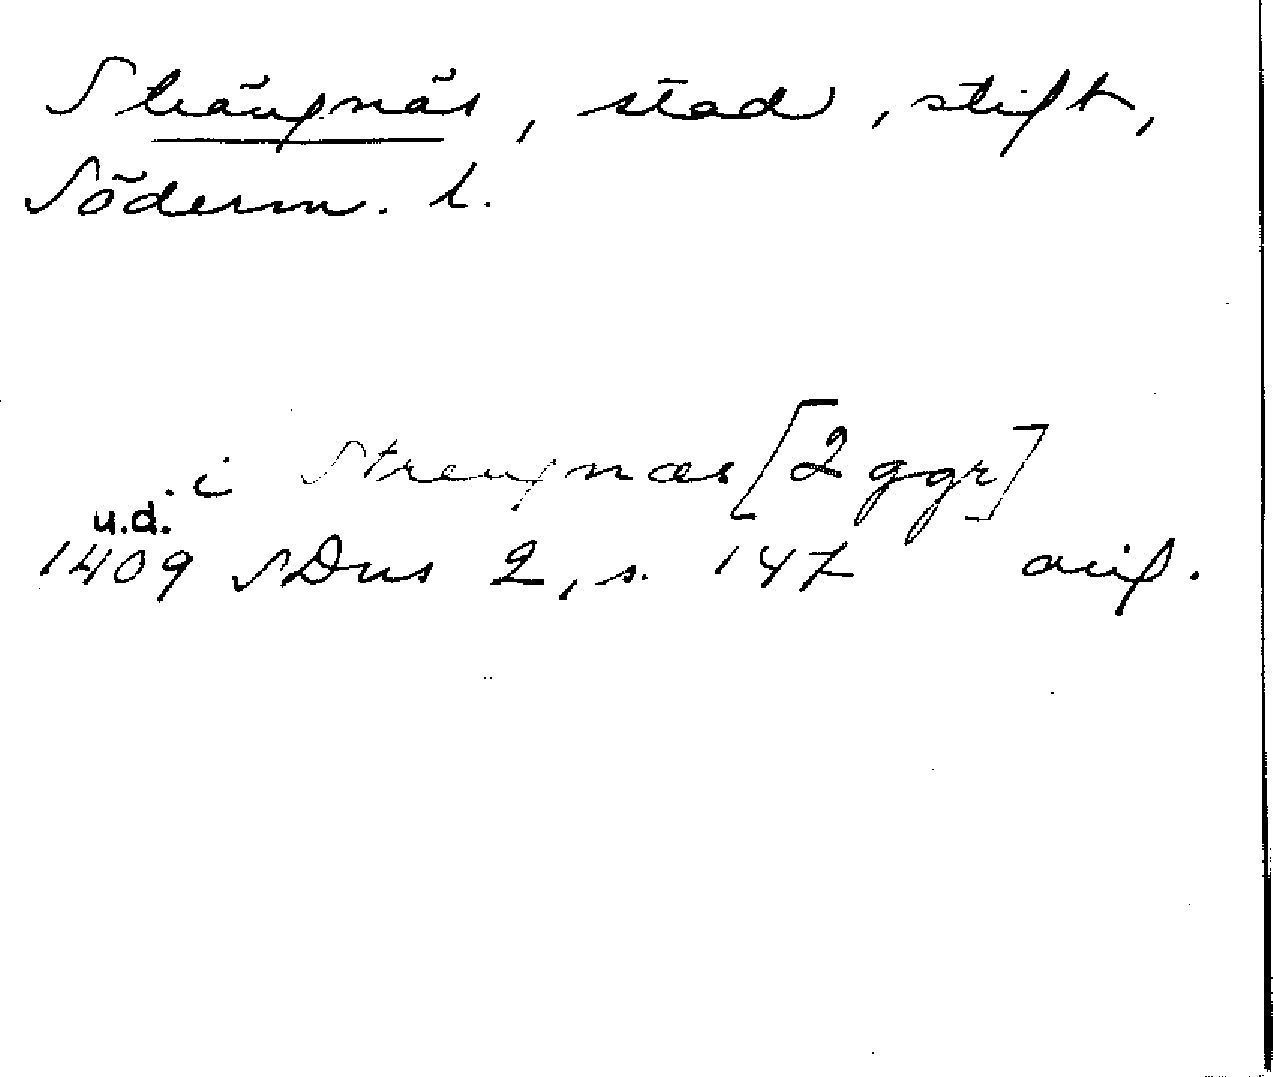 Strängnäs, stad, stift,
Söderm. l.
i Strengnæs [2 ggr]
u.d.
1409 SDns 2, s. 147 avskr.